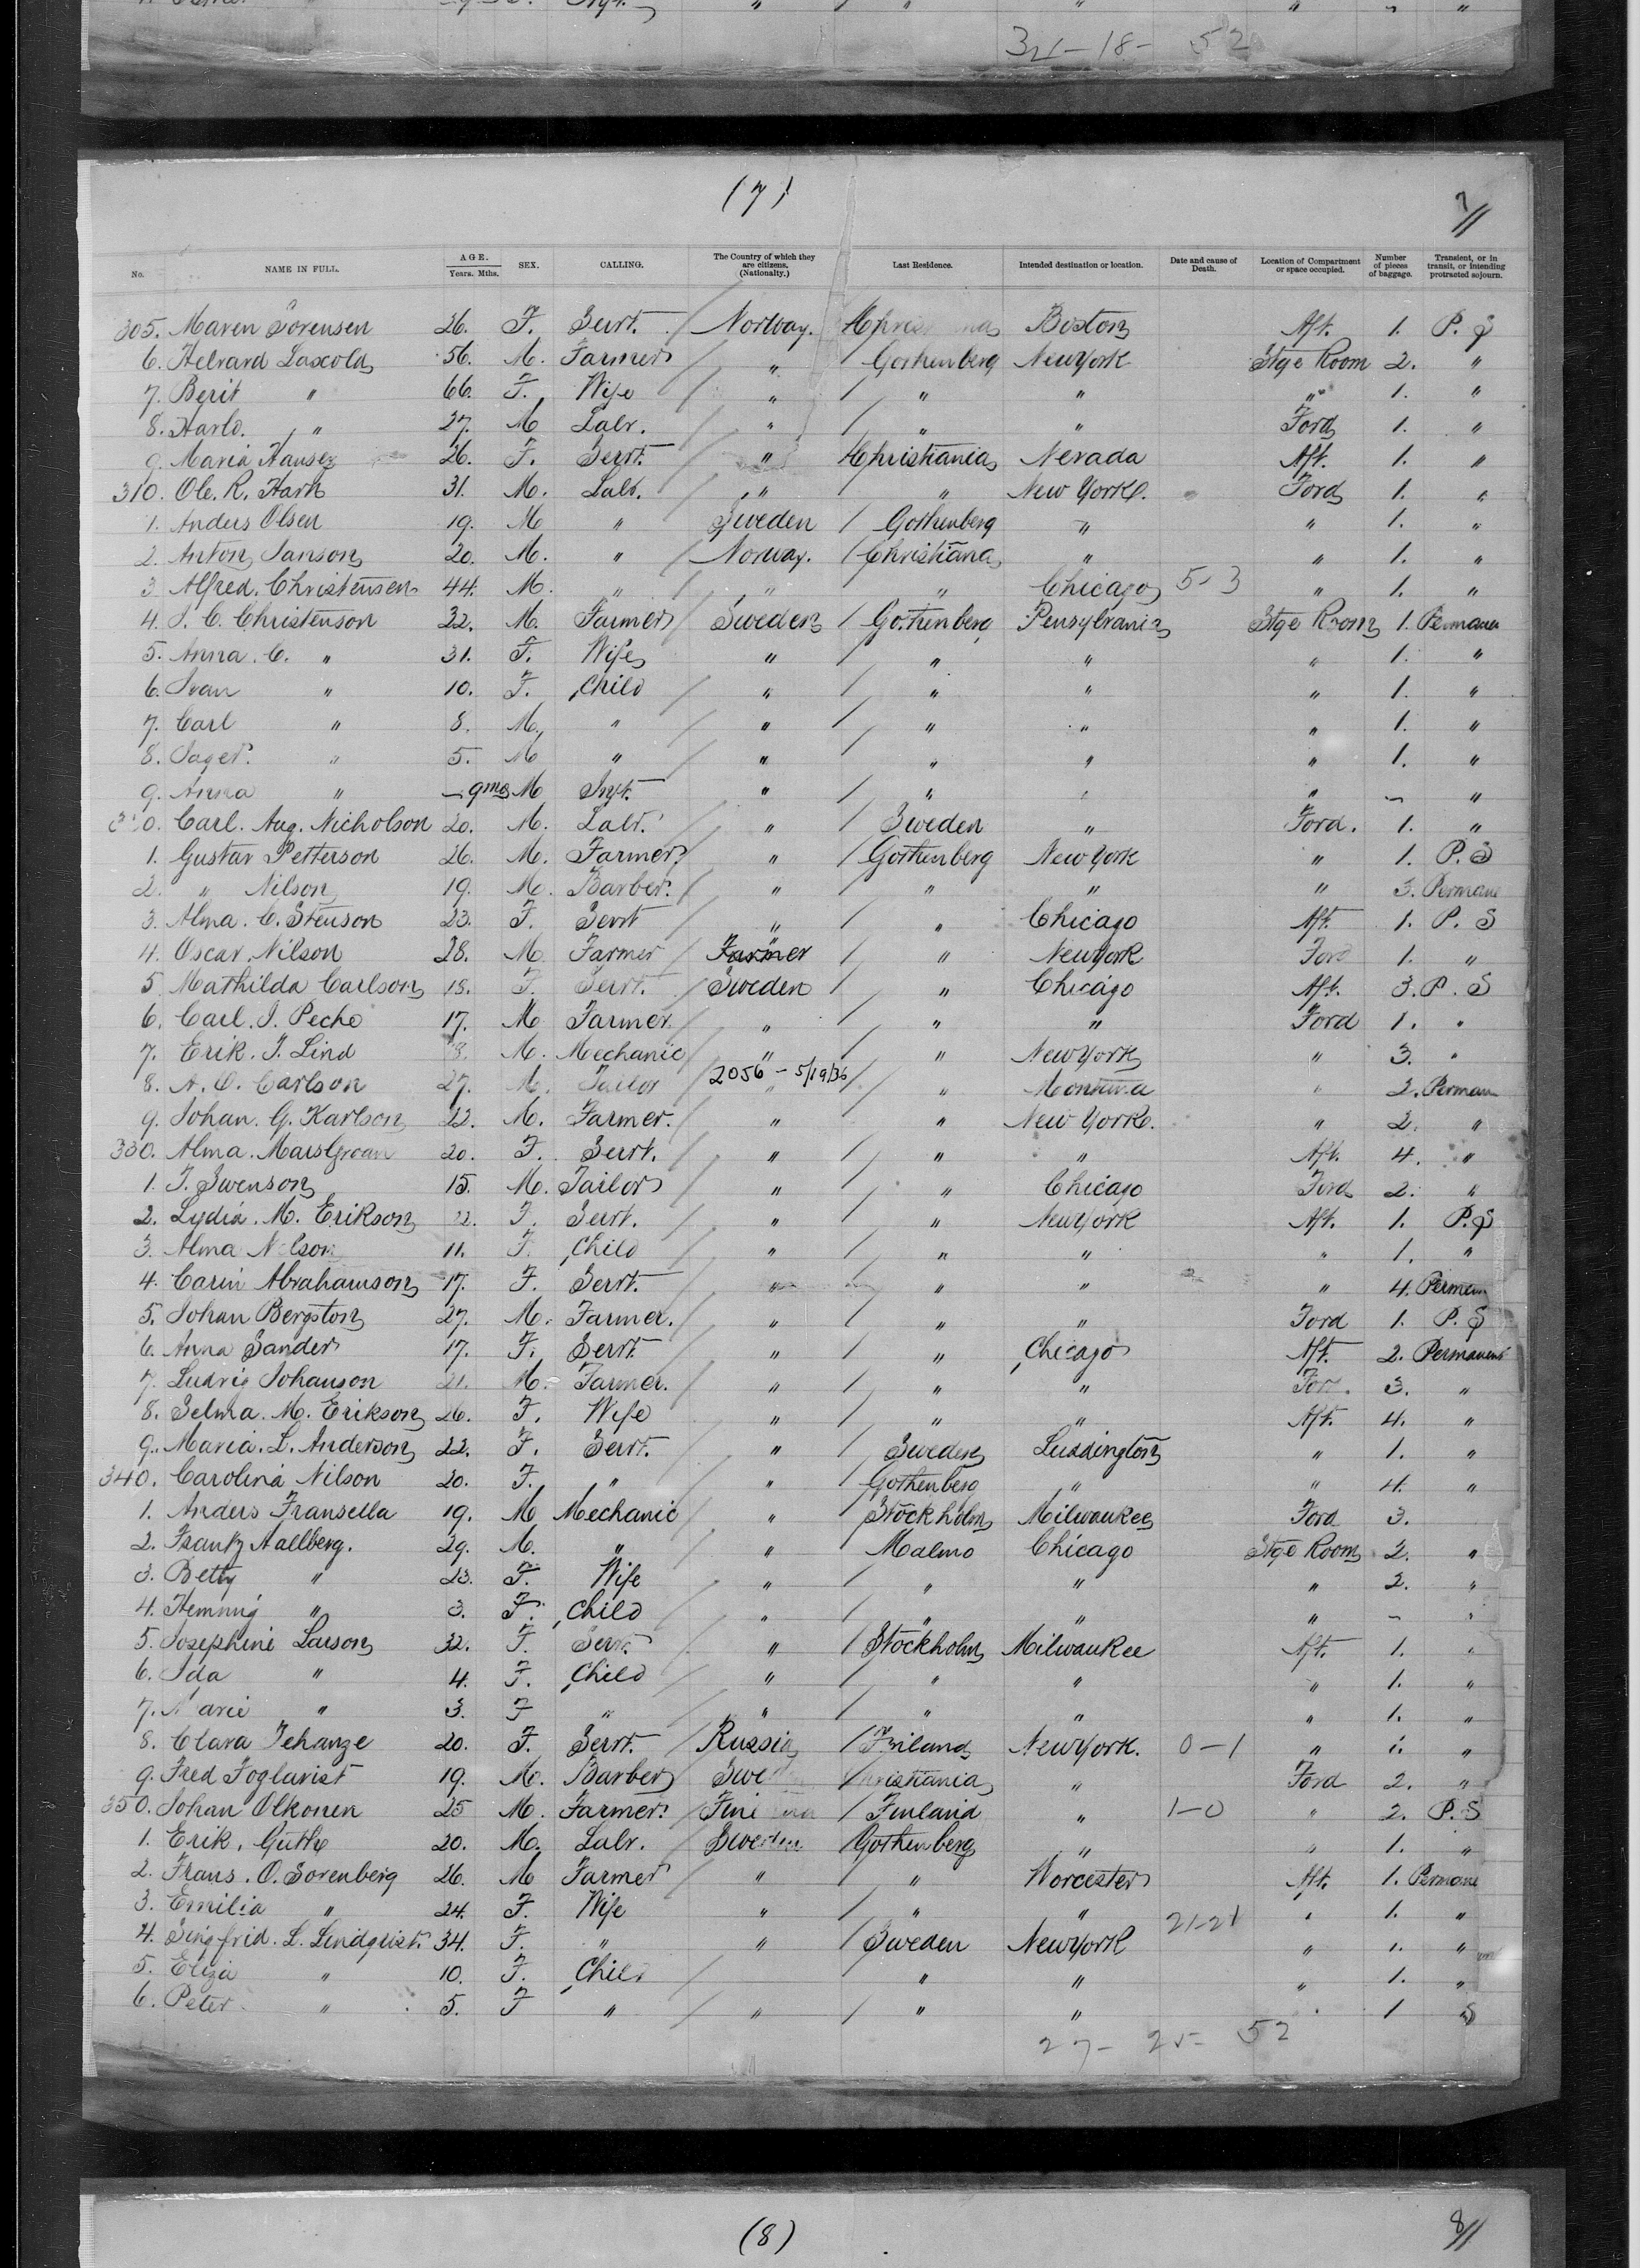 34-18- 52
(7)
7/11
No. NAME IN FULL. AGE. Years. Mths. SEX. CALLING. The Country of which they are citizens. (Nationalty.) Last Residence. Intended destination or location. Date and cause of Death. Location of Compartment or space occupied. Number of pieces of baggage. Transient, or in transit, or intending protracted sojourn.
305. Maren Sorensen 26. F. Servt. / Norway. Boston Aft. 1. P. S
6. Helvard Lascold 56. M. Farmer / " / Gothenberg New York Stge Room 2. "
7. Berit " 66. F. Wife / " / " " " 1. "
8. " 27. M Labr. / " / " " Ford 1. "
9. Maria 26. F. Servt. / " Christiania Nevada Aft. 1. "
310. Ole. R. 31. M. Labr. / " " New York. Ford 1. "
1. Anders Olsen 19. M " / Sweden / Gothenberg " " 1. "
2. Anton Janson 20. M. " / Norway. / Christiana " " 1. "
3 Alfred. Christensen 44. M. " / " " Chicago 5-3 " 1. "
4. J. C. Christenson 32. M. Farmer / Sweden / Gothenberg Pensylvania Stge Room 1. Permanen
5. Anna. C. " 31. F. Wife / " / " " " 1. "
6. Ivan " 10. F. Child / " / " " " 1. "
7. Carl " 8. M. " / " / " " " 1. "
8. " 5. M " / " / " " " 1. "
9. Anna " – 9mos M Inft. / " / " " " – "
0. Carl. Aug. Nicholson 20. M. Labr. / " / Sweden " Ford. 1. "
1. Gustav Petterson 26. M. Farmer / " / Gothenberg New York " 1. P. S
2. " Nilson 19. M. Barber. / " / " " " 3. Permane
3. Alma. C. Stenson 23. F. Servt / " / " Chicago Aft. 1. P. S
4. Oscar. Nilson 28. M. Farmer / Farmer / " New York Ford 1. "
5 Mathilda Carlson 18. F. Servt. / Sweden / " Chicago Aft. 3. P. S
6. Carl. J. Pecho 17. M Farmer / " / " " Ford 1. "
7. Erik. J. Lind M. Mechanic / " / " New York " 3. "
8. A. O. Carlson 27. M. Tailor / 2056 – 5/19/36 / " " 2. Perman
9. Johan. G. Karlson 22. M. Farmer. / " " New York. " 2. "
330. Alma. 20. F. Servt. / " / " " Aft. 4. "
1. J. Swenson 15. M. Tailor / " / " Chicago Ford 2. "
2. Lydia. M. Erikson 22. F. Servt. / " / " New York Aft. 1. P. S
3. Alma Nelson 11. F. Child / " / " " " 1. "
4. Carin Abrahamson 17. F. Servt. / " / " " " 4. Perman
5. Johan Bergston 27. M. Farmer. / " / " " Ford 1. P. S
6. Anna Sander 17. F. Servt. / " / " Chicago Aft. 2. Permanent
7. Ludvig Johanson 21. M. Farmer. / " / " " Ford. 3. "
8. Selma. M. Erikson 26. F. Wife / " / " " Aft. 4. "
9. Maria. L. Anderson 22. F. Servt. / " / Sweden Luddington " 1. "
340. Carolina Nilson 20. F. " / " / Gothenberg " " 4. "
1. Anders Fransella 19. M Mechanic / " / Stockholm Milwaukee Ford 3.
2. Frantz Aallberg. 29. M. " / " / Malmo Chicago Stge Room 2. "
3. Betty " 23. F. Wife / " / " " " 2. "
4. Hemmig " 3. F. Child / " / " " " – "
5. Josephine Larson 32. F. Servt. / " / Stockholm Milwaukee Aft. 1. "
6. Ida " 4. F. Child / " / " " " 1. "
7. Marie " 3. F " / " / " " " 1. "
8. Clara 20. F. Servt. / Russia / Finland New York. 0–1 " 1. "
9. Fred 19. M. Barber / Swe Christiania " Ford 2. "
350. Johan Olkonen 25 M. Farmer. / / Finland " 1–0 " 2. P. S
1. Erik. 20. M. Labr. / Sweden / Gothenberg " " 1. "
2. Frans. O. Sorenberg 26. M Farmer / " / " Worcester Aft. 1. Permane
3. Emilia " 24. F. Wife / " / " " " 1. "
4. Singfrid. L. Lindquist. 34. F. " / " / Sweden New York 21-21 " 1. "
5. Eliza " 10. F. Child / / " " " 1. "
6. Peter. " 5. F " / " / " " " 1 "
27- 25- 52
(8)
8/11